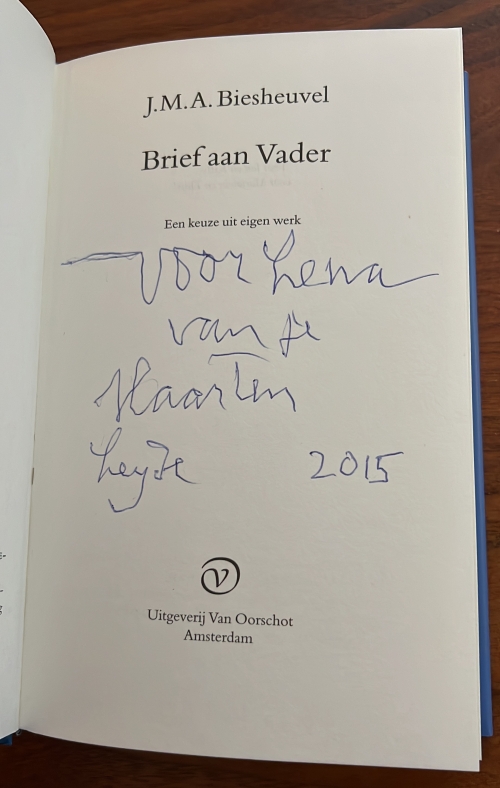 J.M.A. Biesheuvel
Brief aan Vader
Een keuze uit eigen werk
Voor Lena
van je
Maarten
Leyde 2015
Uitgeverij Van Oorschot
Amsterdam